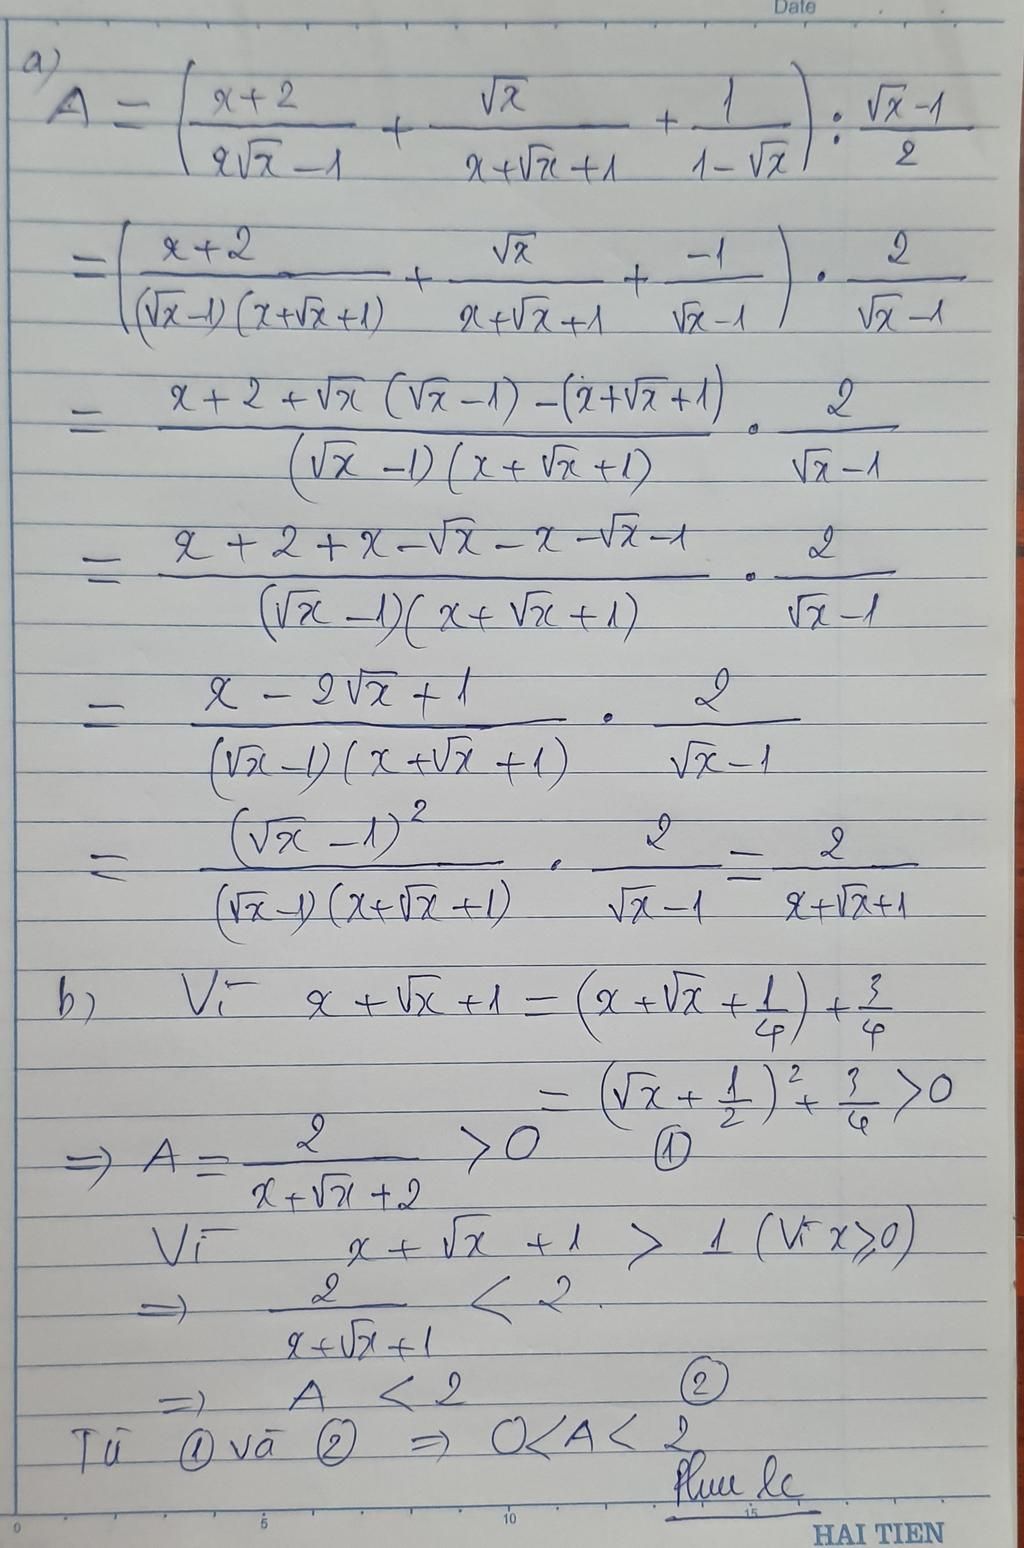 Date
a)
A = ( (x+2)/(2√x −1) + √x/(x+√x+1) + 1/(1−√x) ) : (√x −1)/2
= ( (x+2)/((√x−1)(x+√x+1)) + √x/(x+√x+1) + −1/(√x−1) ) . 2/(√x−1)
= (x+2+√x(√x−1)−(x+√x+1))/((√x−1)(x+√x+1)) . 2/(√x−1)
= (x+2+x−√x−x−√x−1)/((√x−1)(x+√x+1)) . 2/(√x−1)
= (x−2√x+1)/((√x−1)(x+√x+1)) . 2/(√x−1)
= (√x−1)²/((√x−1)(x+√x+1)) . 2/(√x−1) = 2/(x+√x+1)
b) Vì x+√x+1 = (x+√x+1/4) + 3/4
= (√x+1/2)² + 3/4 > 0
⇒ A = 2/(x+√x+2) > 0 ①
Vì x+√x+1 > 1 (Vì x ≥ 0)
⇒ 2/(x+√x+1) < 2.
⇒ A < 2 ②
Từ ① và ② ⇒ 0 < A < 2
0 5 10 15
HAI TIEN